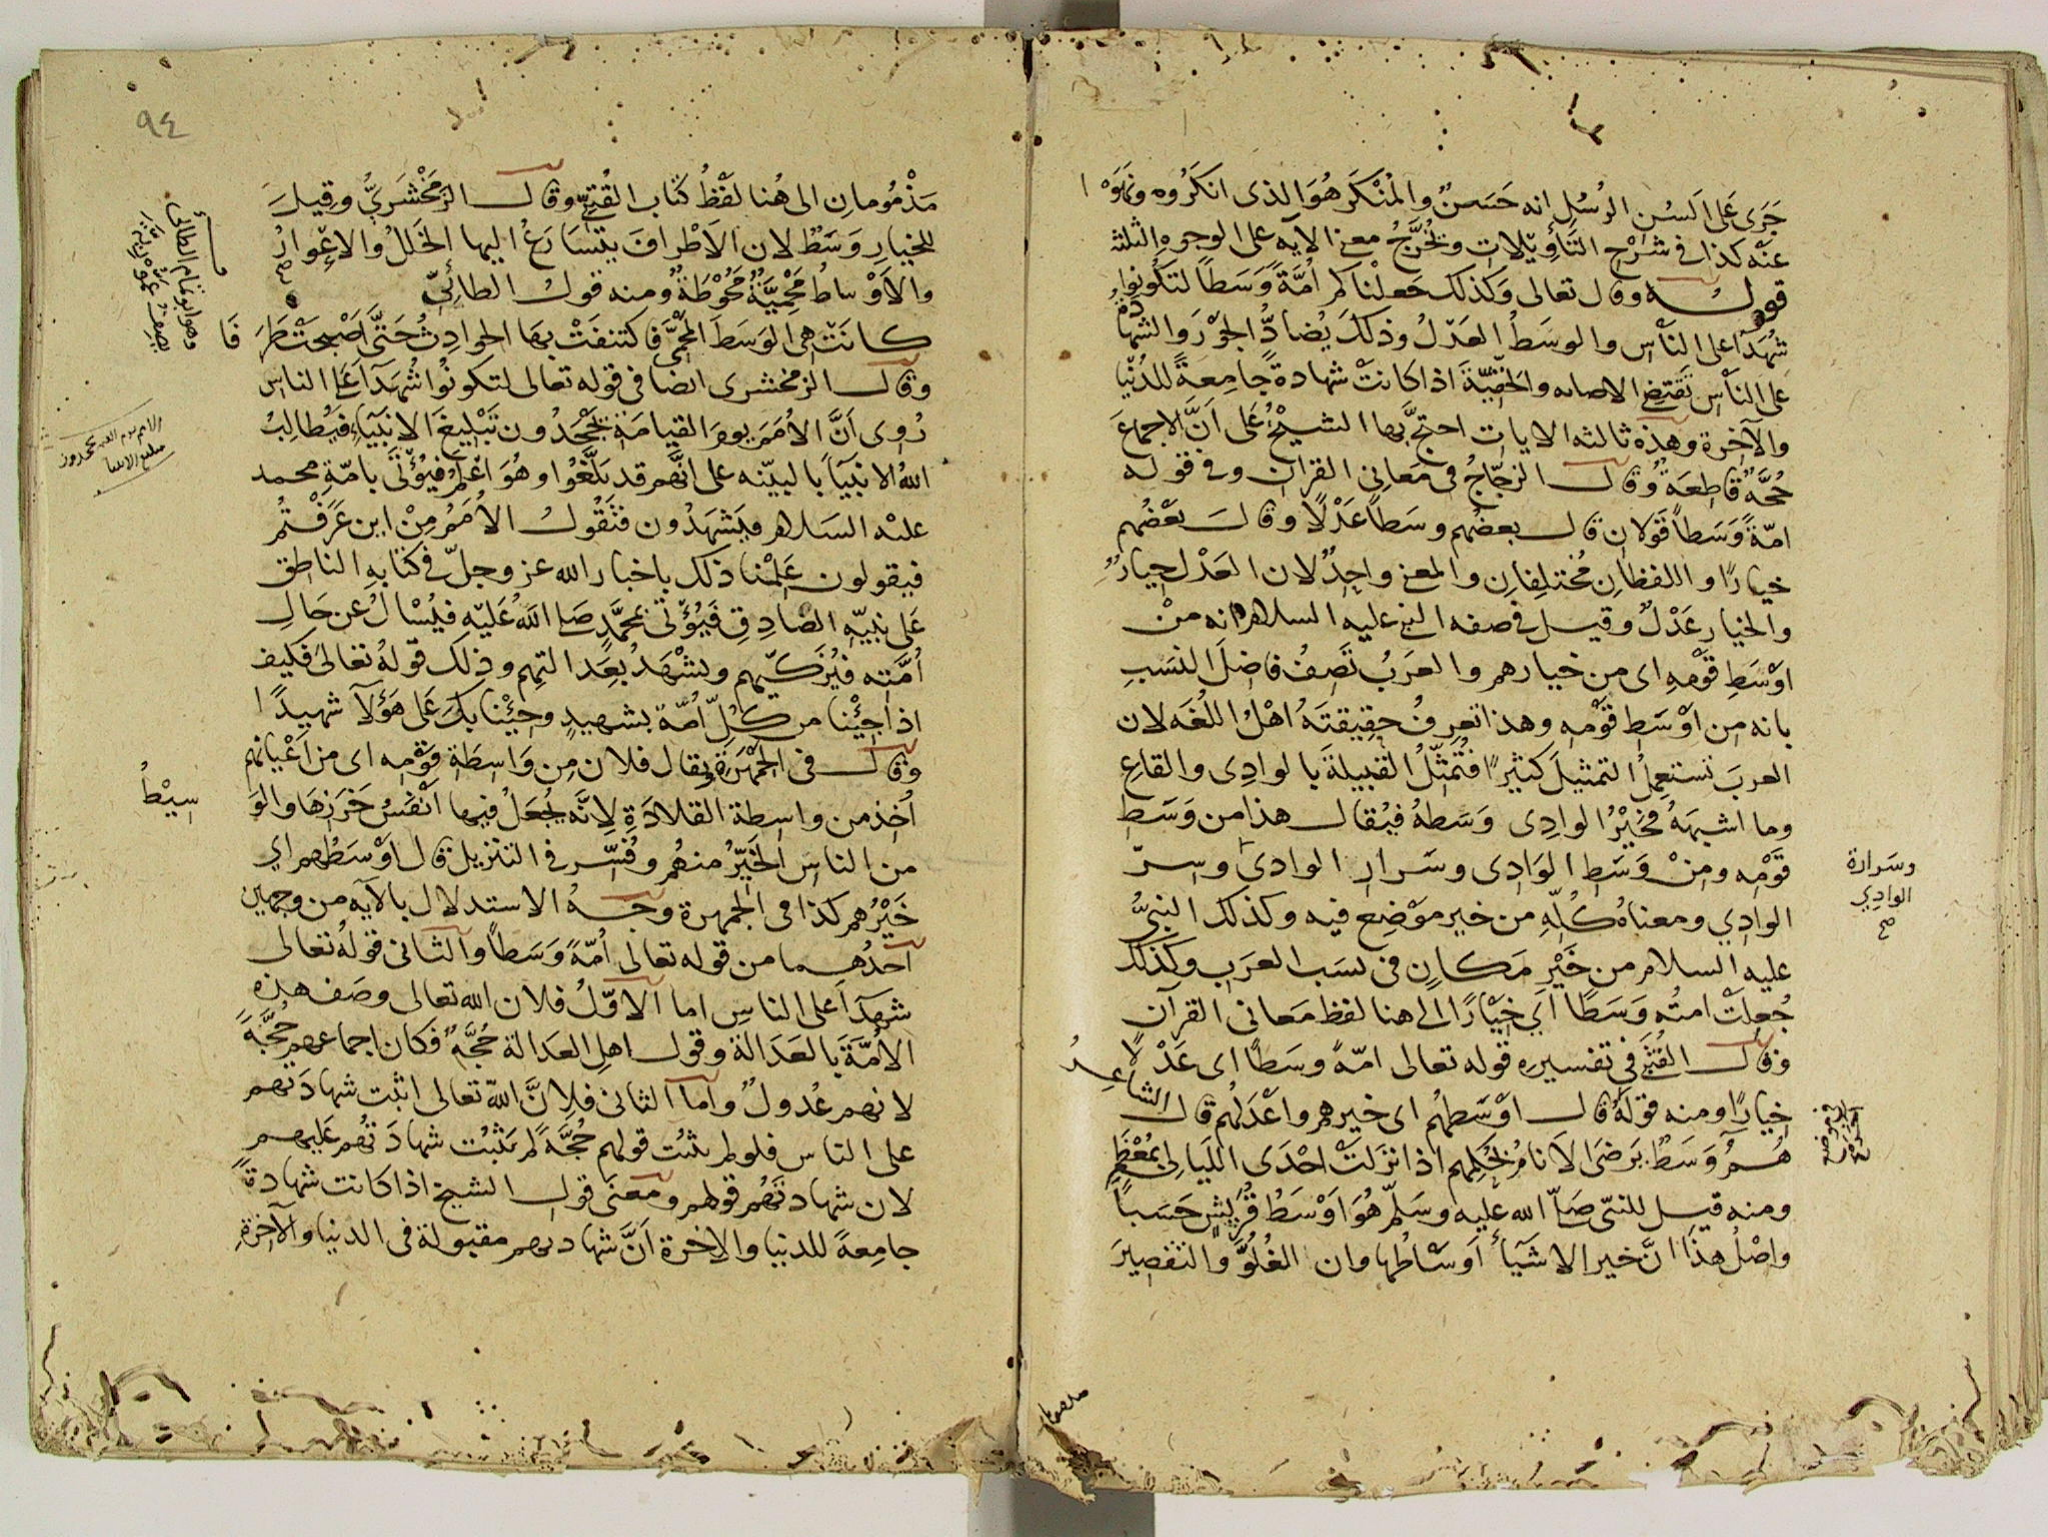 جَرَى عَلَى اَلسُنِ الرُسُلِ انه حَسَنٌ والمُنْكَر هُوَ الذى انكَرُوه ونَهَوْا
عَنْه كذا فى شَرْحِ التَأوِيْلات ويُخَرَّجُ معنى الآيه على الوجوه الثلثه
قولُه وقال تعالى وَكذلك جَعلْناكم اُمَّةً وَسَطاً لتكُونوا
شُهَدَآءَ على النَّاسِ والوسَطُ العَدْلُ وذلكَ يُضادُّ الجَوْرَ والشهادَةُ
على النَّاسِ تَقتضِى الاصابه والحَقيَّةَ اذا كانَتْ شهادةً جامِعةً للدُنْيا
والآخرة وهذِه ثالثه الايات احتجَّ بها الشيْخُ عَلى اَنَّ الاجماعَ
حُجَّةٌ قاطِعَةٌ وقال الزجّاجُ فى مَعَانِى القرآن وفى قوله
امّةً وَسَطاً قولانِ قال بعضُهم وسَطاً عَدْلًا وقالَ بعْضُهم
خيارًا واللفظانِ مُختلِفانِ والمعنى واحِدٌ لان العَدْل خِيارٌ
والخيار عَدْلٌ وقيل فى صفه النبى عليه السلام انه منْ
اوْسَطِ قَوْمِهِ اى من خيارهم والعرَبُ تَصِفُ فاضلَ النسَبِ
بانه من اوْسَطِ قَوْمِه وهذا تعرِفُ حقِيقتَهُ اهْلُ اللغَه لان
العربَ تستعمِلُ التمثيلَ كثيرًا فتُمثِّلُ القبيلةَ بالوادِى والقاعِ
وما اشبهَهُ فخَيْرُ الوادِى وَسَطهُ فيُقال هذا من وَسَطِ
قَوْمِه ومِنْ وَسَطِ الوَادِى وسَرار الوادى وسِرّ
وسَرارة
الوادِي
صح
الوادِي ومعناهُ كُلِّهِ من خير مَوْضِعٍ فيه وكذلك النبىُّ
عليه السلام من خَيْرِ مَكانٍ فى نسَب العرَبِ وكذلك
جُعِلَتْ امتُه وَسَطًا اَىْ خِيَارًا الى هنا لفظ مَعانى القرآن
وقال القُتَبِى فى تفسيرِه قوله تعالى امّةً وسَطاً اى عَدْلًا
خيارًا ومنه قولهُ قال اوْسَطهُم اى خيرهم واعْدَلهُم قال الشاعِرُ
هُمُ وَسَطٌ يَرضَى الاَنامُ بحُكمِهم اذا نزلَتْ احْدَى اللَيالى بمُعْظَمِ
ومنه قيل للنبّى صَلّى الله عليه وسَلّم هُوَ اوْسَطُ قُرَيْشٍ حَسَباً
واصْلُ هذَا انَّ خير الاشيَآءِ اَوسَاطُها وان الغُلُوَّ والتقصِيرَ
٩٤
مَذْمُومانِ الى هُنا لفْظُ كتاب القُتَبِىّ وقال الزمَخْشَرِىُّ وقِيلَ
للخيارِ وَسَطٌ لان الاَطْرافَ يتَسَارَعُ اليها الخَلَلُ والاِعْوارُ
والاَوْساطُ مَحْمِيَّةٌ مَحُوْطَةٌ ومنه قول الطائِىّ
كانَتْ هِى الوَسَطَ المَحْمِىَّ فاكتنفَتْ بها الحوادِثُ حَتَّى اَصْبحَتْ طَرَفَا
وهو ابو تمام الطائى
وقال الزمخشرى ايضا فى قوله تعالى لتكونُوا شُهَدَآءَ على الناسِ
رُوِى اَنَّ الاُمَمَ يومَ القيامَةِ يَجْحَدُون تَبْلِيغَ الانبيَآءِ فيُطالِبُ
اللهُ الانبيَآءَ بالبيّنه على انَّهم قد بلَّغُوا وهُوَ اعْلَمُ فيُؤْتَى بامّةِ محمد
عليْه السَلام فيَشهَدُون فتَقُولُ الاُمَمُ مِنْ اين عَرَفْتُم
فيقولون عَلِمْنا ذلك باخبار الله عز وجلّ فى كتابهِ الناطِق
عَلى نبيّهِ الصّادِقِ فيُؤْتَى بمحمَّدٍ صَلى اللهُ عَليْهِ فيُسْاَلُ عن حَالِ
اُمَّتِه فيُزَكّيهم ويشْهَدُ بعَدالتِهم وذلِك قوْلهُ تعَالى فكيف
اذا جِئْنا من كلّ اُمّةٍ بشهيدٍ وجِئْنا بكَ عَلى هؤلآء شهيدًا
وقال فى الجمْهَرَةِ يقال فلان مِن وَاسِطَةِ قَوْمِه اى من اَعْيانهم
اُخِذ من واسِطة القلادَةِ لِانَّه يُجعَلُ فيها اَنفَسُ خرَزِهَا والوَسِيْطُ
من الناسِ الخَيِّرُ منهُم وفُسِّر فى التنزيل قال اَوْسَطُهم اي
خَيْرُهم كذا فى الجمهرة وجهُ الاستدلال بالآيه من وجهين
اَحدُهما من قوله تعالى اُمّةً وَسَطاً والثانى قولهُ تعالى
شهَدَآءَ على الناسِ اما الاوّلُ فلان الله تعالى وصَف هذه
الاُمَّةَ بالعَدَالة وقول اهلِ العَدالة حُجَّةٌ فكان اجماعهم حُجَّةً
لانهم عُدولٌ واما الثانى فلانَّ اللهَ تعالى اثبت شهادَتهم
على الناس فلو لم يثبُت قولهم حُجَّةً لم يَثبُت شهادَتهُم عليهم
لان شهادتَهُم قولهم ومعنَى قول الشيخ اذا كانت شهادةً
جامِعةً للدنيا والاخرة اَنَّ شهادتهم مقبولة فى الدنيا والآخرةِ